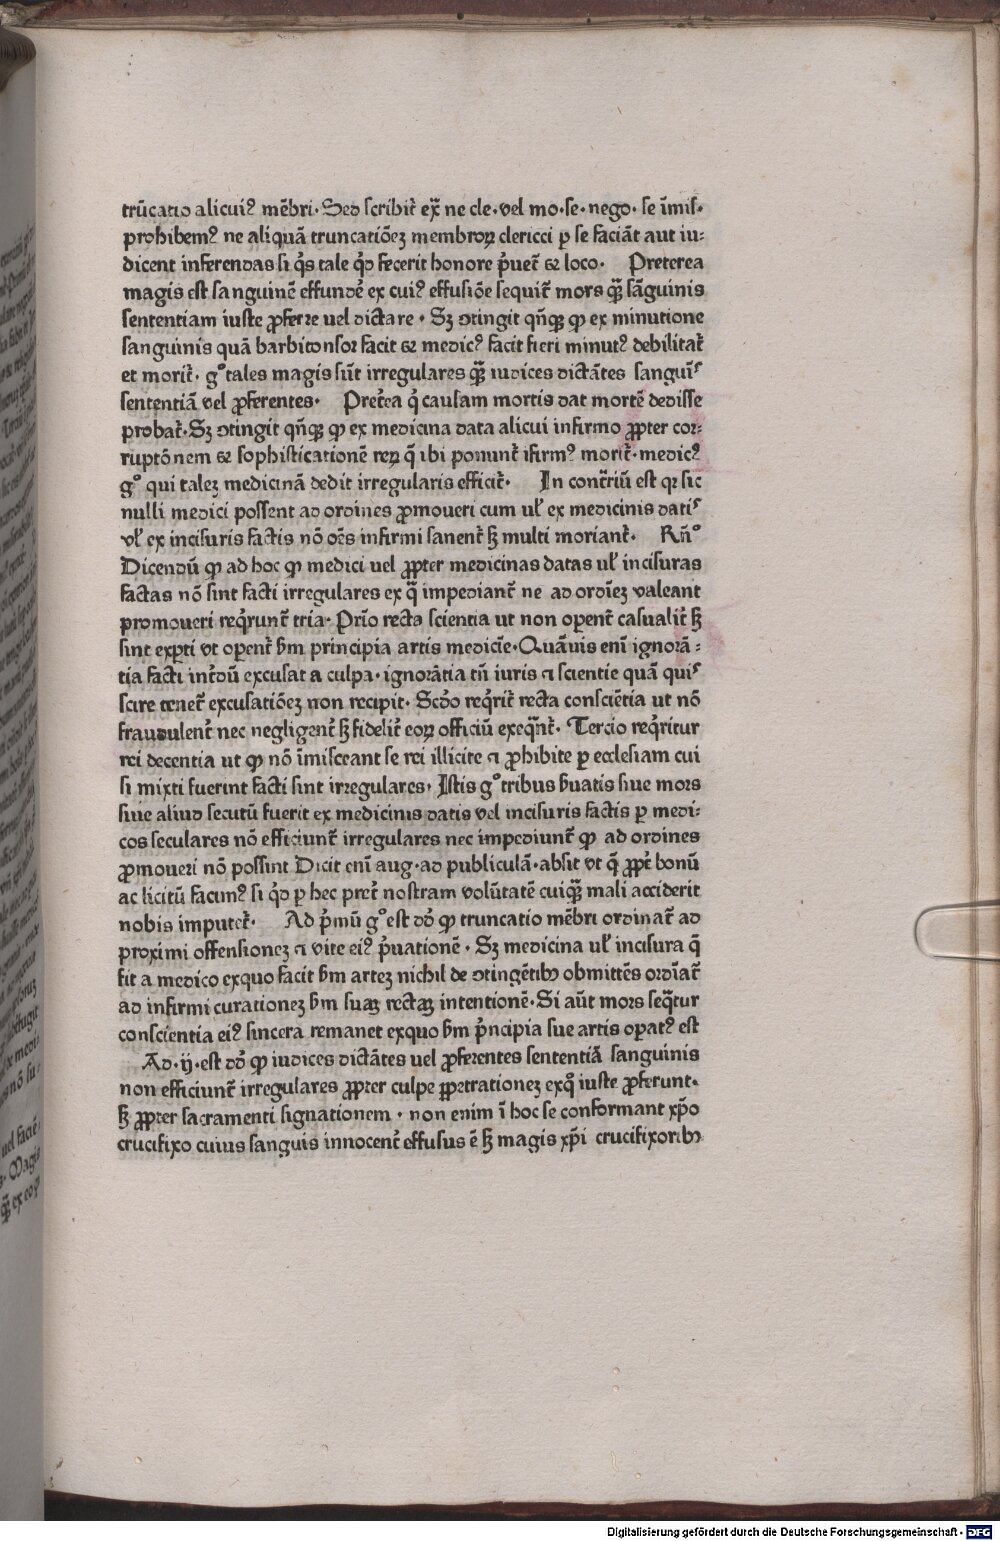 trūcatio alicuiꝰ mēbri· Sed scribit̄ ex̄ ne cle· vel mo· se· nego· se īmis·
prohibemꝰ ne aliquā truncatiōeꝫ membroꝝ clericci ꝑ se faciāt aut iu:
dicent inferendas si q̇s tale q̇d fecerit honore ṗuet̄ ⁊ loco· Preterea
magis est sanguinē effunde᷑ ex cuiꝰ effusiōe sequit̄ mors qꝫ̄ sāguinis
sententiam iuste ꝓferre uel dictare · Sꝫ ↄtingit qn̄qꝫ ꝙ ex minutione
sanguinis quā barbitonsor facit ⁊ medicꝰ facit fieri minutꝰ debilitat̄
et morit̄· gͦ tales magis sūt irregulares qꝫ̄ iudices dictātes sanguīˢ
sententiā vel ꝓferentes· Pret̄ea q̇ causam mortis dat mortē dedisse
probat̄· Sꝫ ↄtingit qn̄qꝫ ꝙ ex medicina data alicui infirmo ꝓpter cor:
ruptōnem ⁊ sophisticationē reꝝ q̄ ibi ponunt̄ ifirmꝰ morit̄· medicꝰ
gͦ qui taleꝫ medicinā dedit irregularis efficit̄· In cont̄riū est qꝛ sic
nulli medici possent ad ordines ꝓmoueri cum ul̓ ex medicinis datiˢ
vl̓ ex incisuris factis nō oēs infirmi sanent̄ sꝫ multi moriant̄· Rn̄ͦ
Dicendū ꝙ ad hoc ꝙ medici uel ꝓpter medicinas datas ul̓ incisuras
factas nō sint facti irregulares ex q̄ impediant̄ ne ad ordīeꝫ valeant
promoueri req̇runt̄ tria· Prīo recta scientia ut non opent̄ casualit̄ sꝫ
sint exꝑti vt opent̄ ẜm principia artis medicīe· Quāuis enī ignorā:
tia facti int̄dū excusat a culpa· ignorātia tn̄ iuris ⁊ scientie quā quiˢ
scire tenet̄ excusatiōeꝫ non recipit· Scd̄o req̇rit̄ recta consciētia ut nō
fraudulent̄ nec negligent̄ sꝫ fidelit̄ eoꝝ officiū exeq̄nt̄· Tercio req̇ritur
rei decentia ut ꝙ nō īmisceant se rei illicite ⁊ ꝓhibite ꝑ ecclesiam cui
si mixti fuerint facti sint irregulares· Istis gͦ tribus ẜuatis siue mors
siue aliud secutū fuerit ex medicinis datis vel incisuris factis ꝑ medi:
cos seculares nō efficiunt̄ irregulares nec impediunt̄ ꝙ ad ordines
ꝓmoueri nō possint Dicit enī aug· ad publiculā· absit vt q̄ ꝓpt̄ bonū
ac licitū facimꝰ si q̇d ꝑ hec pret̄ nostram volūtatē cuiqꝫ̄ mali acciderit
nobis imputet̄· Ad ṗmū gͦ est dō ꝙ truncatio mēbri ordinat̄ ad
proximi offensioneꝫ ⁊ vite eiꝰ ṗuationē · Sꝫ medicina ul̓ incisura q̄
fit a medico exquo facit ẜm arteꝫ nichil de ↄtingētibꝫ obmittēs ordīat̄
ad infirmi curationeꝫ ẜm suaꝫ rectaꝫ intentionē· Si aūt mors seq̄tur
conscientia eiꝰ sincera remanet exquo ẜm ṗncipia sue artis opatꝰ est
Ad· ij· est dō ꝙ iudices dictātes uel ꝓferentes sententiā sanguinis
non efficiunt̄ irregulares ꝓpter culpe ꝑpetrationeꝫ exq̇ iuste ꝓferunt·
sꝫ ꝓpter sacramenti signationem · non enim ī hoc se conformant xp̄o
crucifixo cuius sanguis innocent̄ effusus ē sꝫ magis xp̄i crucifixoribꝫ
Digitalisierung gefördert durch die Deutsche Forschungsgemeinschaft · DFG